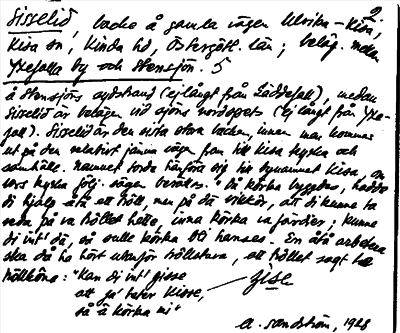 2
Sisselid, backe å gamla vägen Ulrika – Kisa,
Kisa sn, Kinda hd, Östergötl. län; beläg. mellan
Yxefalla by och Stensjön. 5
å Stensjöns sydstrand (ej långt från Läddefall), medan
Sisselid är belägen vid sjöns nordspets (ej långt från Yxe-
fall). Sisselid är den sista stora backen, innan man kommer
ut på den relativt jämna vägen fram till Kisa kyrka och
samhälle. Namnet torde hänföra sig till bynamnet Kisa, om
vars kyrka följ. sägen berättas: "Då körka byggdes, hadde
di hjälp åtå ett tröll, men på dä vilkor, att di kunne ta
reda på va tröllet hette, inna körka va färdier; kunne
di int' dä, så sulle körka bli hanses. En åtå arbetera
ska då ha hört utanför tröllstuva, att tröllet sagt te
trollköna: "Kan di int' gisse
att ja' heter Kisse, — Gisse
så ä körka mi"
A. Sandström, 1928